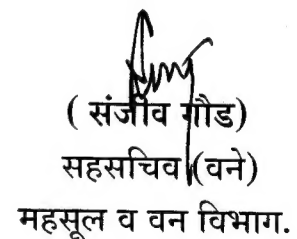 ( संजीव गौड)
सहसचिव (वने)
महसूल व वन विभाग.